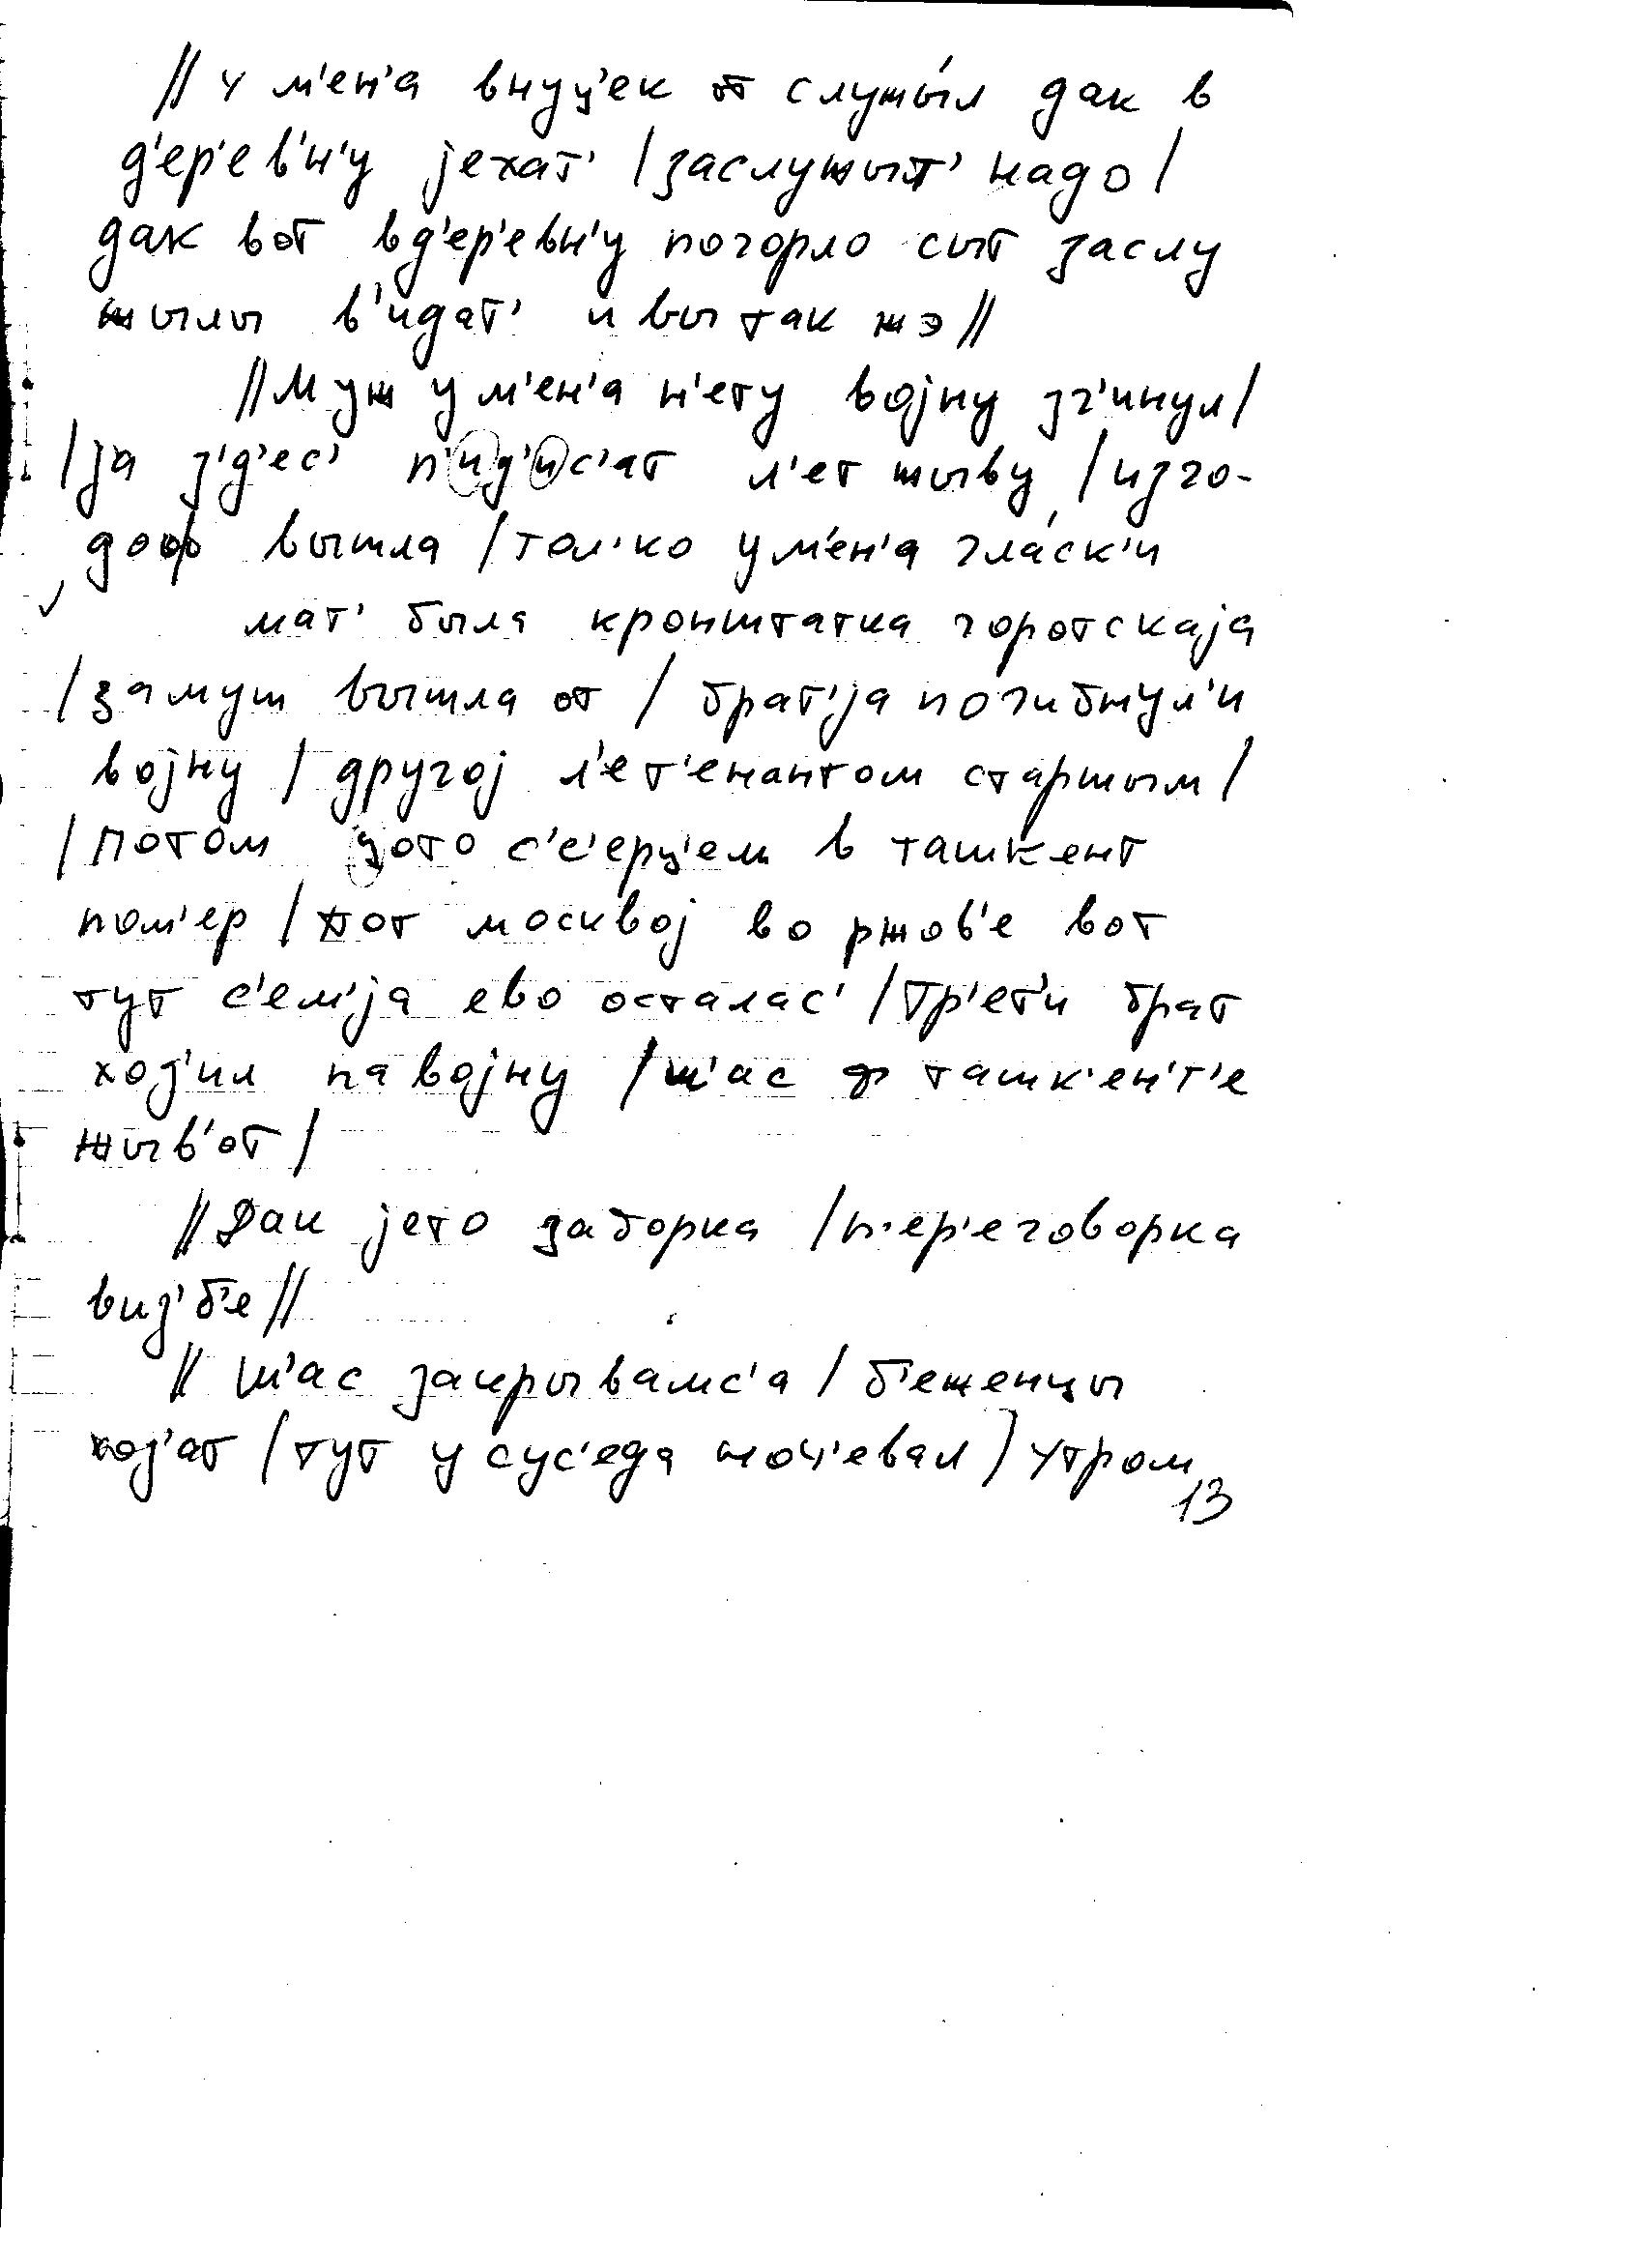 // у м'ен'а внуц'ек от служы́л дак в
д'ер'ев'н'у јехат' / заслужыт' надо /
дак вот в д'ер'евн'у погорло сыт заслу
жылы в'идат' и вы так жэ //
// Муж у м'ен'а н'ету војну зг'инул /
/ ја з'д'ес' п'ид'ис'ат л'ет жыву / из го-
доф вышла / тол'ко у м'ен'а гла́ск'и
мат' была кронштатка горотскаја
/ замуш вышла от / брат'ја погибнул'и
војну / другој л'ет'енантом старшым /
/ Потом цото с'е'ерц'ем в ташкент
пом'ер / пот москвој во ржов'е вот
тут с'ем'ја ево осталас' / Тр'ет'и брат
ход'ил на војну / ш'ас ф ташк'ен'т'е
жыв'от /
// Дак јето заборка / п'ер'еговорка
в из'б'е //
// Ш'ас закрывамс'а / б'еженцы
ход'ат / тут у сус'еда ноч'евал / утром
13